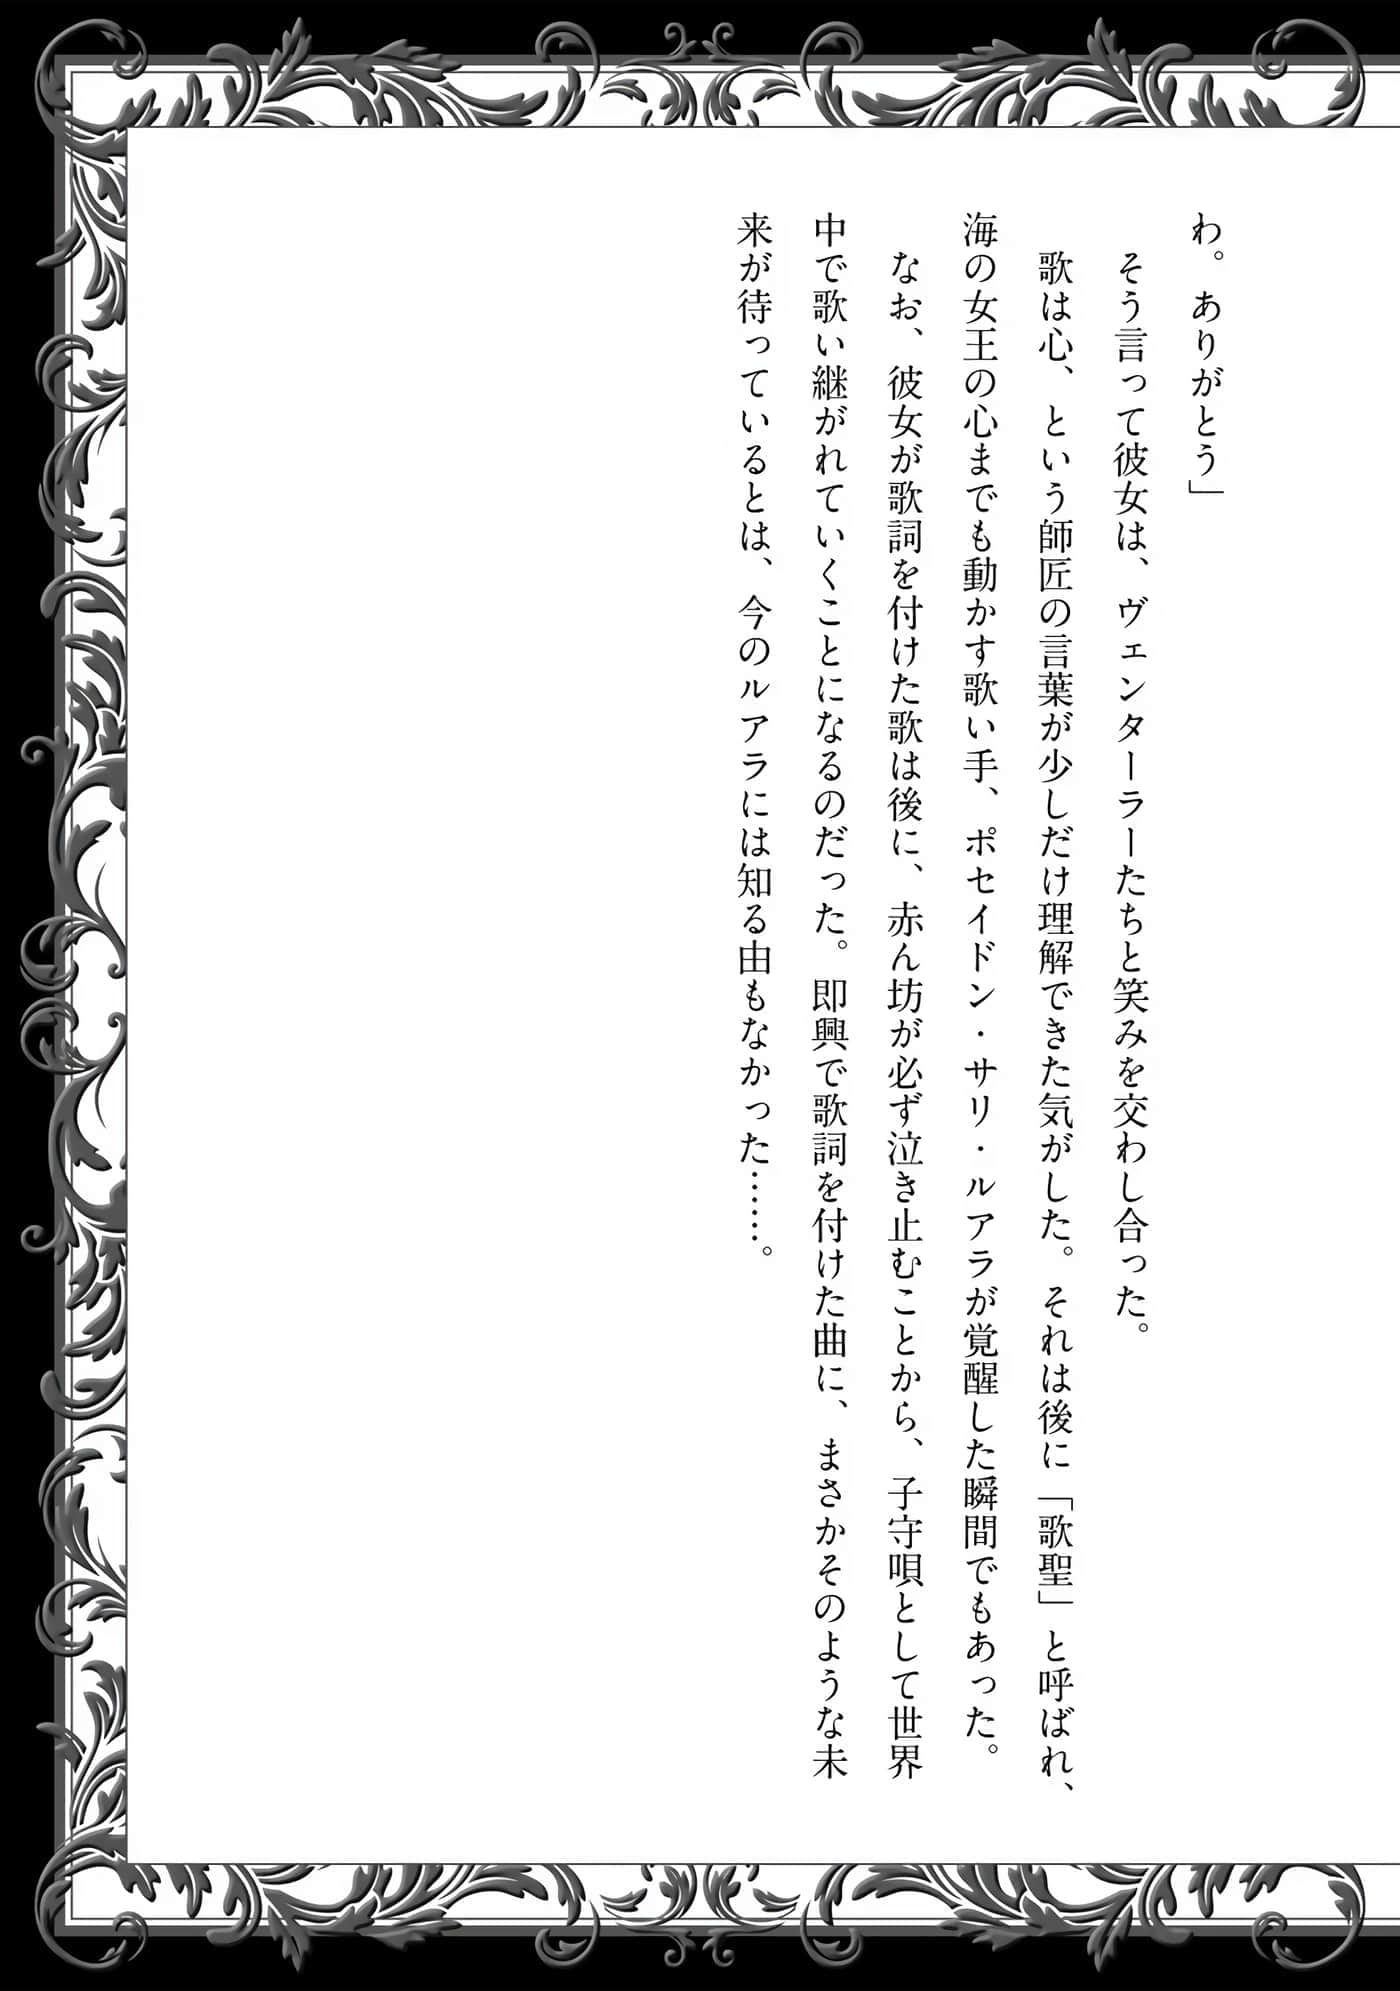 わ。ありがとう」
　そう言って彼女は、ヴェンターラーたちと笑みを交わし合った。
　歌は心、という師匠の言葉が少しだけ理解できた気がした。それは後に「歌聖」と呼ばれ、
海の女王の心までも動かす歌い手、ポセイドン・サリ・ルアラが覚醒した瞬間でもあった。
　なお、彼女が歌詞を付けた歌は後に、赤ん坊が必ず泣き止むことから、子守唄として世界
中で歌い継がれていくことになるのだった。即興で歌詞を付けた曲に、まさかそのような未
来が待っているとは、今のルアラには知る由もなかった……。